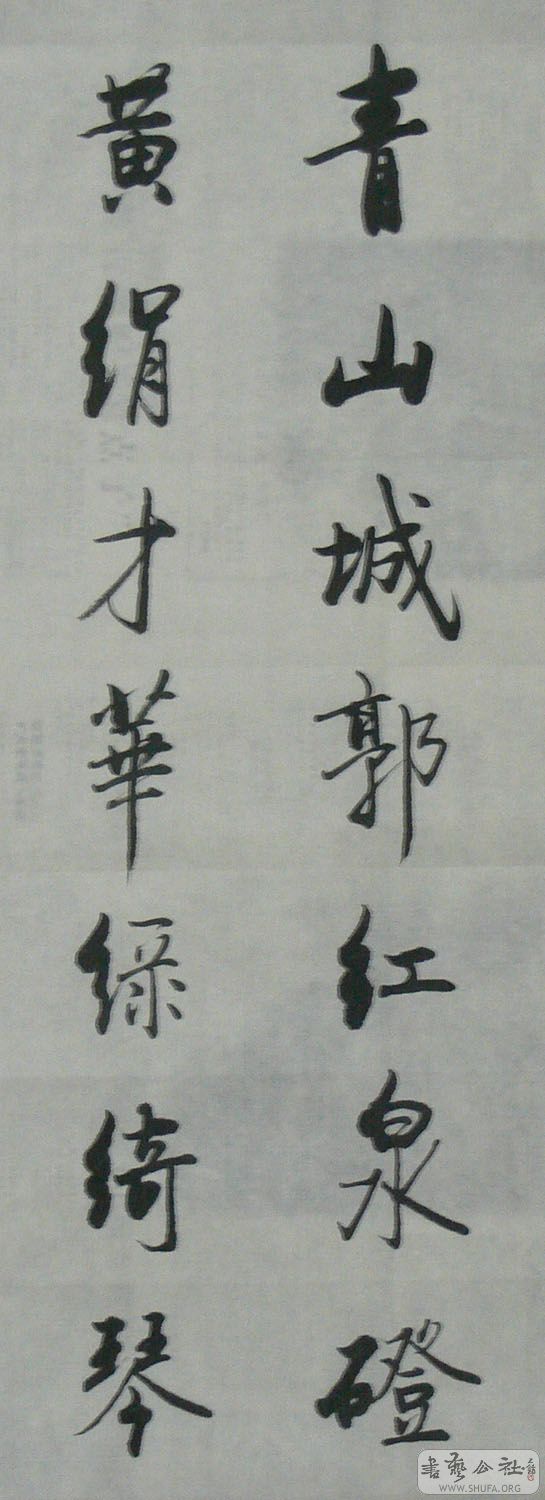 青山城郭紅泉磴
黃絹才華綠綺琴
書藝公社
WWW.SHUFA.ORG